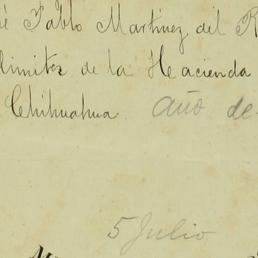 sé Pablo Martinez del R
limites de la Hacienda
Chihuahua año de
5 Julio